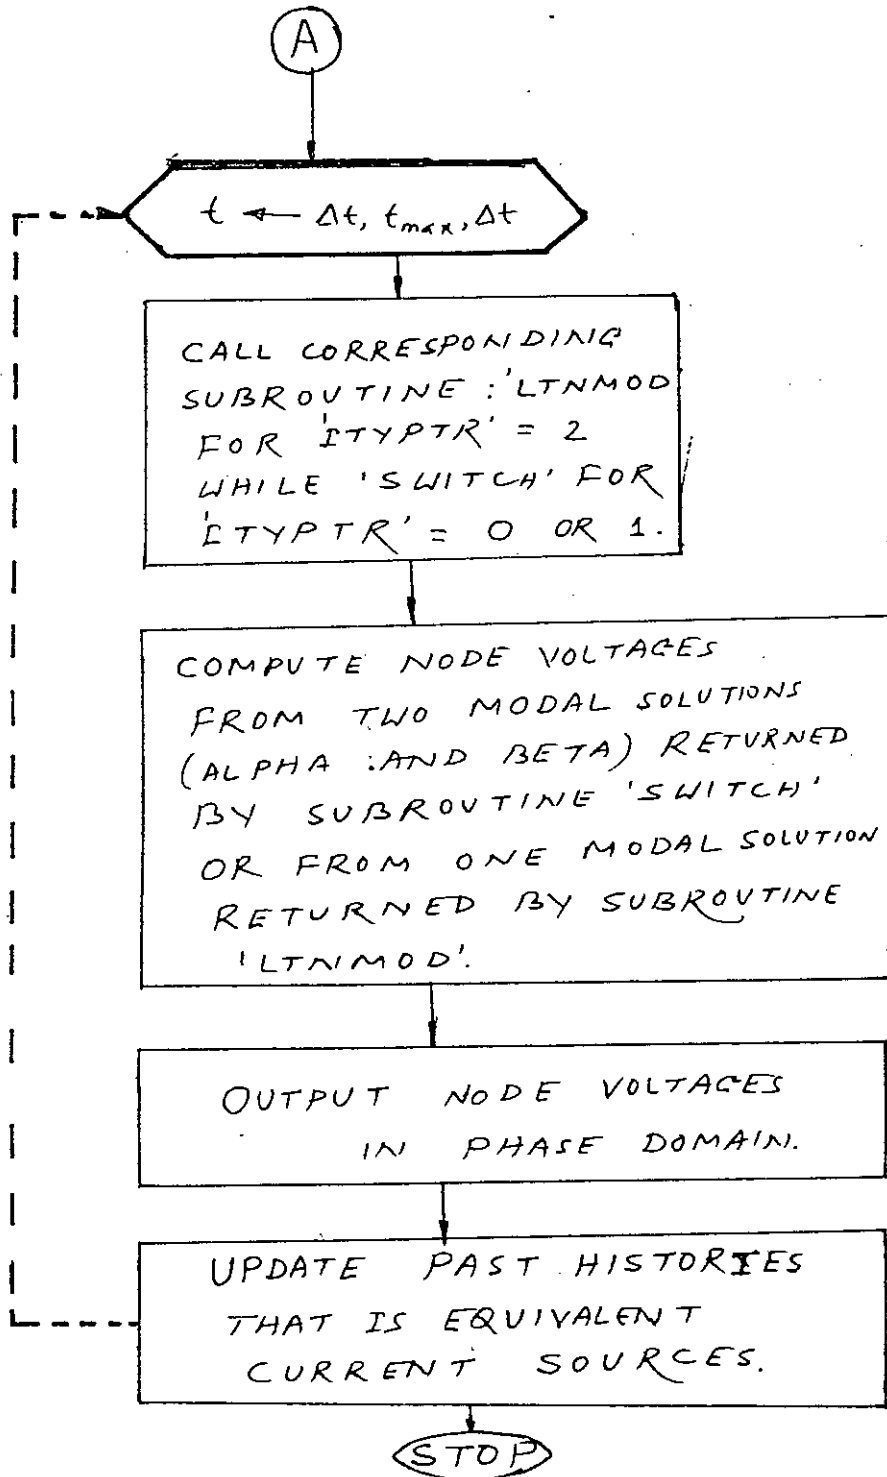 A
t ← Δt, tmax, Δt
CALL CORRESPONDING
SUBROUTINE : 'LTNMOD
FOR 'ITYPTR' = 2
WHILE 'SWITCH' FOR
'ITYPTR' = 0 OR 1.
COMPUTE NODE VOLTAGES
FROM TWO MODAL SOLUTIONS
(ALPHA AND BETA) RETURNED
BY SUBROUTINE 'SWITCH'
OR FROM ONE MODAL SOLUTION
RETURNED BY SUBROUTINE
'LTNMOD'.
OUTPUT NODE VOLTAGES
IN PHASE DOMAIN.
UPDATE PAST HISTORIES
THAT IS EQUIVALENT
CURRENT SOURCES.
STOP